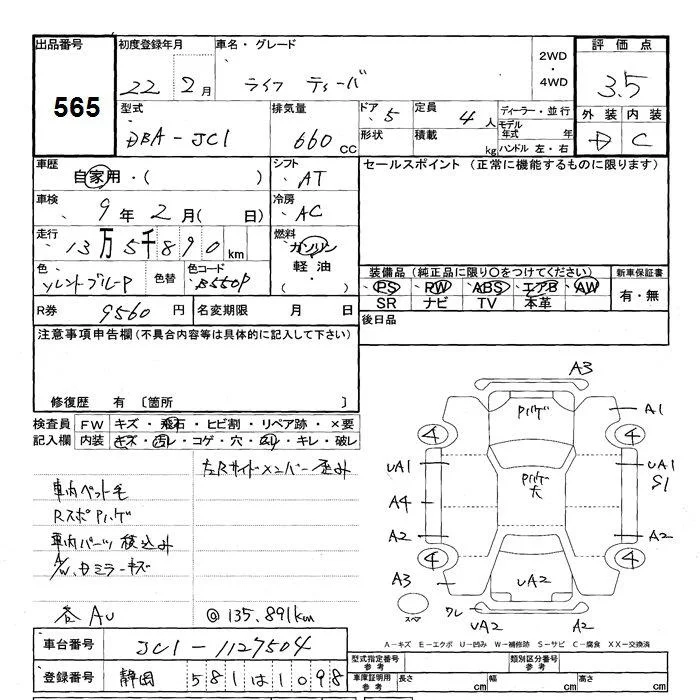 出品番号 565
初度登録年月 22 2月
車名・グレード ライフ ディーバ
2WD・4WD
評価点 3.5
外装 内装
D C
型式 DBA-JC1
排気量 660 cc
ドア 5
形状
定員 4人
積載 kg
ディーラー・並行
モデル年式 年
ハンドル 左・右
車歴 自家用・( )
シフト AT
車検 9年2月( 日)
冷房 AC
走行 13万5千890km
燃料 ガソリン
軽油・( )
色
色替
色コード B550P
R券 9560円
名変期限 月 日
セールスポイント (正常に機能するものに限ります)
装備品(純正品に限り〇をつけてください)
PS・PW・ABS・エアB・AW
SR ナビ TV 本革
新車保証書 有・無
後日品
注意事項申告欄(不具合内容等は具体的に記入して下さい)
修復歴 有 〔箇所 〕
検査員記入欄
FW キズ・飛石・ヒビ割・リペア跡・×要
内装 キズ・汚レ・コゲ・穴・ヘリ・キレ・破レ
左Rサイドメンバー歪み
車内ペット毛
RスポPハゲ
車内パーツ積込み
A/W、Dミラーキズ
各AU
@135.891km
A3
Pハゲ
A1
4 4
UA1
UA1
S1
Pハゲ大
A4
A2 A2
4 4
A3
UA2
スペア
ワレ
UA2
A2
A-キズ E-エクボ U-凹み W-補修跡 S-サビ C-腐食 XX-交換済
車台番号 JC1-1127504
登録番号 静岡 581は1098
型式指定番号 参考
類別区分番号 参考
車庫証明用参考 長さ cm 幅 cm 高さ cm